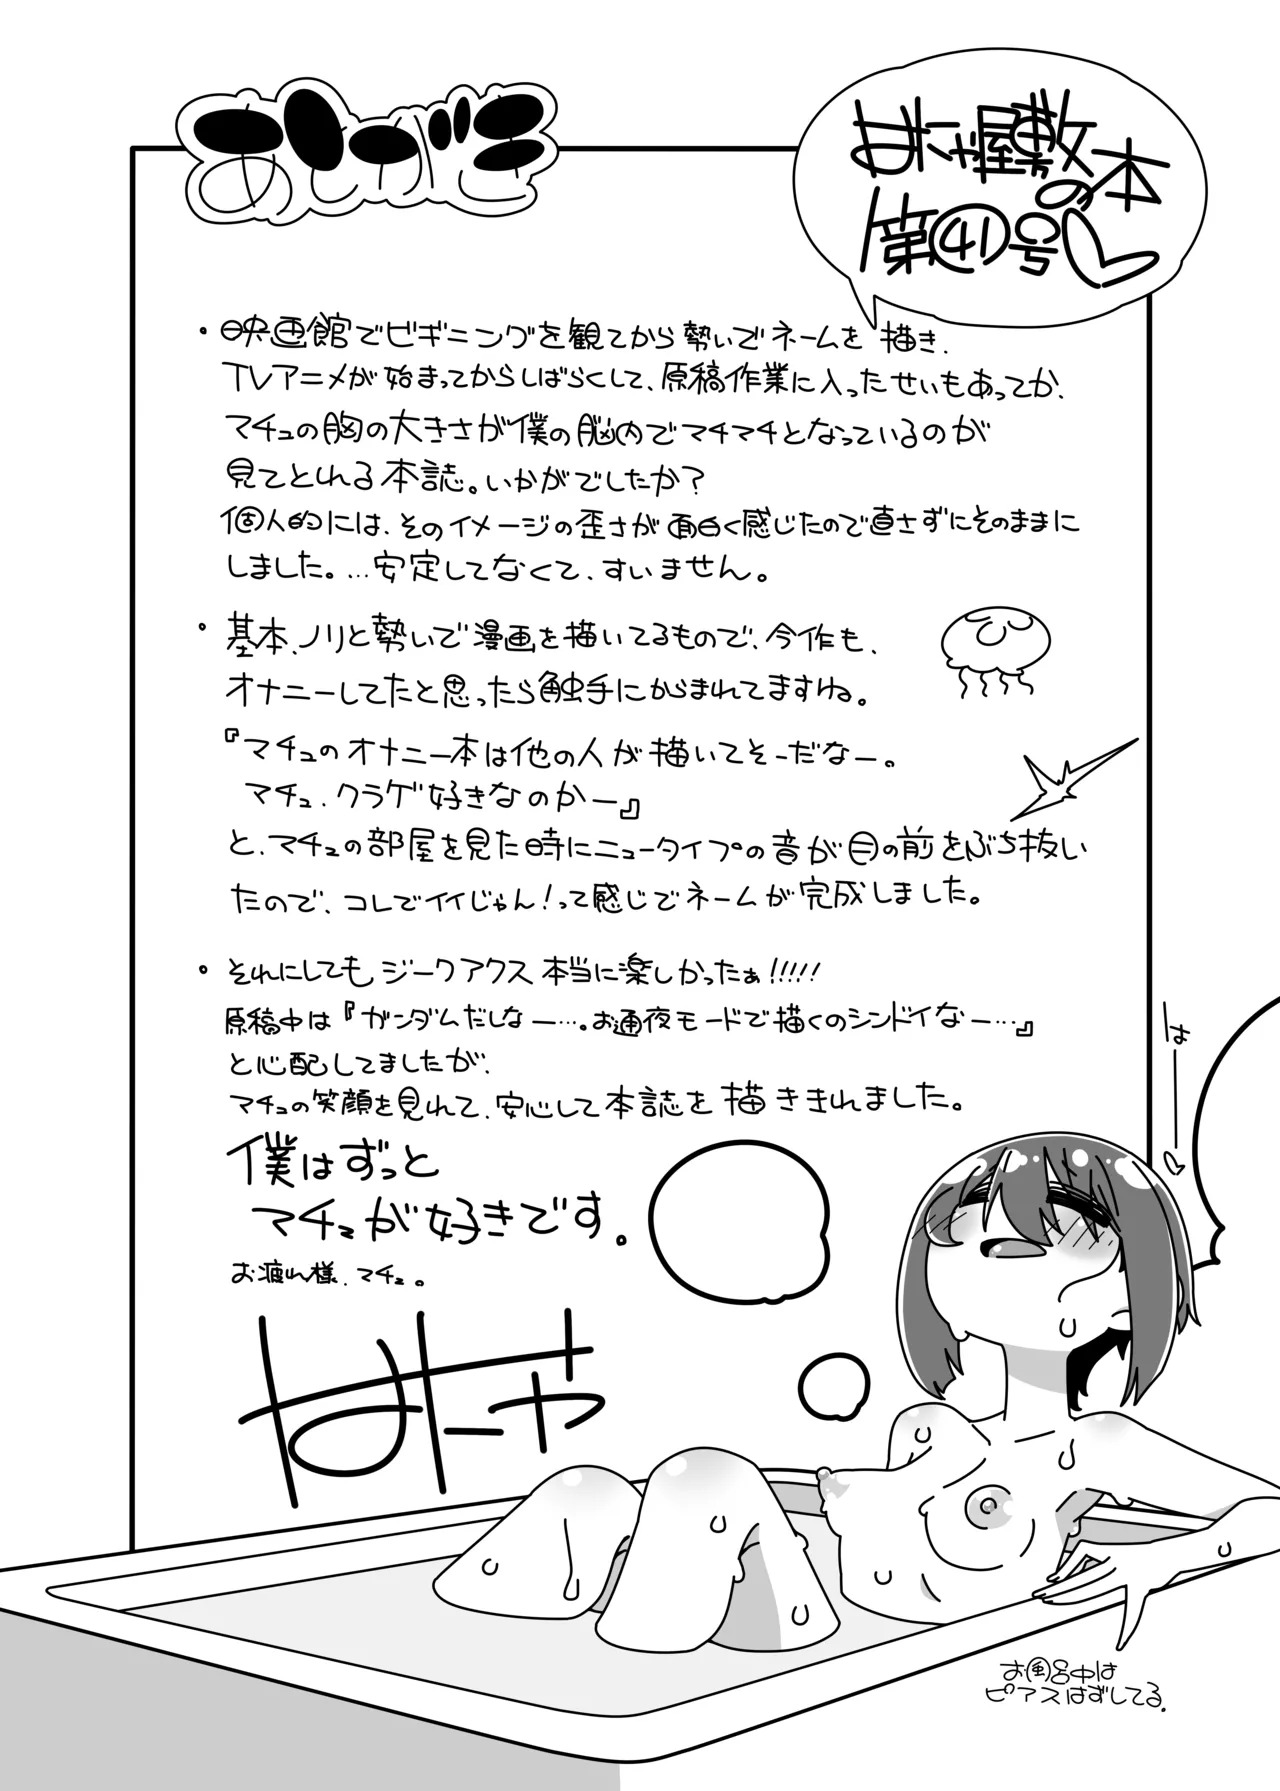 あとがき
はに屋敷の本
第41号♡
・映画館でビギニングを観てから勢いでネームを描き、
TVアニメが始まってからしばらくして、原稿作業に入ったせいもあってか、
マチュの胸の大きさが僕の脳内でマチマチとなっているのが
見てとれる本誌。いかがでしたか?
個人的には、そのイメージの歪さが面白く感じたので直さずにそのままに
しました。…安定してなくて、すいません。
・基本、ノリと勢いで漫画を描いてるもので、今作も、
オナニーしてたと思ったら触手にからまれてますね。
『マチュのオナニー本は他の人が描いてそーだなー。
マチュ、クラゲ好きなのかー』
と、マチュの部屋を見た時にニュータイプの音が目の前をぶち抜い
たので、コレでイイじゃん!って感じでネームが完成しました。
・それにしてもジークアクス本当に楽しかったぁ!!!!!
原稿中は『ガンダムだしなー…。お通夜モードで描くのシンドイなー…』
と心配してましたが、
マチュの笑顔を見れて、安心して本誌を描ききれました。
僕はずっと
マチュが好きです。
お疲れ様、マチュ。
はにや
は――♡
お風呂中は
ピアスはずしてる。